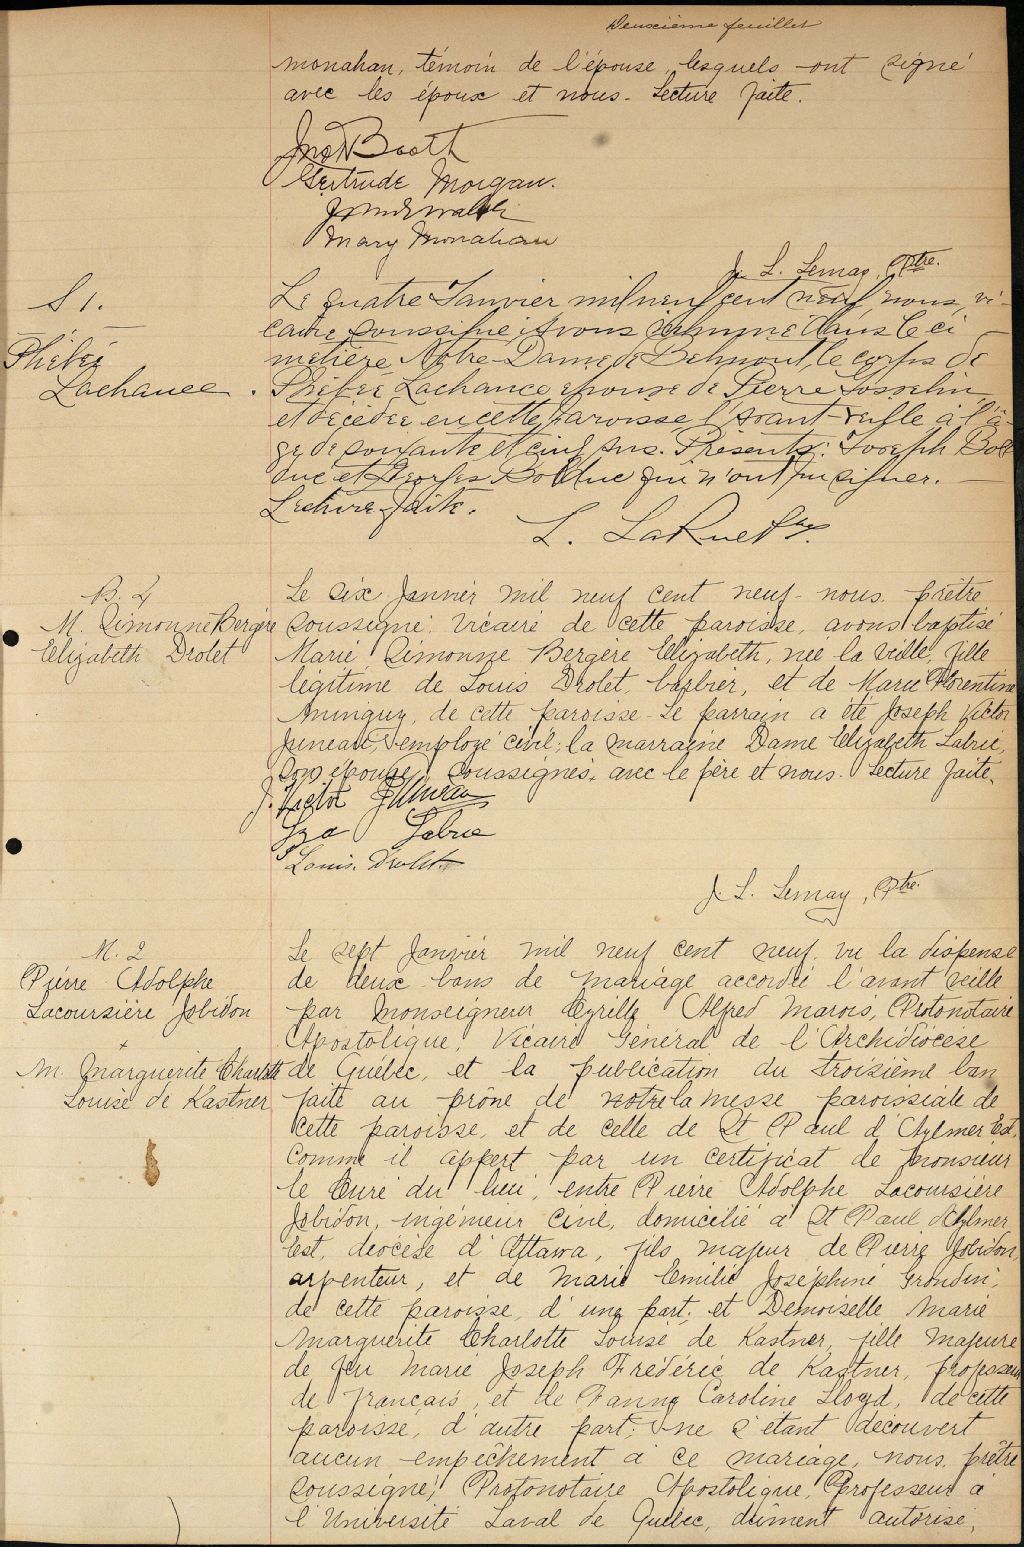 Deuxième feuillet
monahan, témoin de l'épouse, lesquels ont signé
avec les époux et nous. Lecture faite.
Jno Booth
Gertrude Morgan.
Mary Monahan
J. L. Lemay, Ptre.
S 1.
Phébée
Lachance.
Le quatre Janvier mil neuf cent neuf, nous, vi-
caire soussigné, avons inhumé dans le ci-
metière Notre-Dame de Belmont, le corps de
Phébée Lachance épouse de Pierre Josselin
et décédée en cette paroisse l'avant-veille à l'â-
ge de soixante et cinq ans. Présents: Joseph Bol-
duc et Georges Bolduc qui n'ont pu signer.
Lecture faite.
L. LaRue
B. 4
M. Simonne Bergère
Elizabeth Drolet
Le six Janvier mil neuf cent neuf, nous, prêtre
soussigné, Vicaire de cette paroisse, avons baptisé
Marie Simonne Bergère Elizabeth, née la veille, fille
légitime de Louis Drolet, barbier, et de Marie Florentine
de cette paroisse. Le parrain a été Joseph Victor
Juneau, employé civil; la marraine Dame Elizabeth Labrie,
son épouse, soussignés, avec le père et nous. Lecture faite.
J. Victor Juneau
Labrie
Louis Drolet
J. L. Lemay, Ptre.
M. 2
Pierre Adolphe
Lacoursière Jobidon
+
M. Marguerite Charlotte
Louise de Kastner
Le sept Janvier mil neuf cent neuf, vu la dispense
de deux bans de mariage accordée l'avant veille
par Monseigneur Cyrille Alfred Marois, Protonotaire
Apostolique, Vicaire Général de l'Archidiocèse
de Québec, et la publication du troisième ban
faite au prône de notre la messe paroissiale de
cette paroisse, et de celle de St Paul d'Aylmer Est,
comme il appert par un certificat de monsieur
le Curé du lieu, entre Pierre Adolphe Lacoursière
Jobidon, ingénieur civil, domicilié à St Paul d'Aylmer
Est, diocèse d'Ottawa, fils majeur de Pierre Jobidon,
arpenteur, et de Marie Emilie Joséphine Grondin,
de cette paroisse, d'une part; et Demoiselle Marie
Marguerite Charlotte Louise de Kastner, fille majeure
de feu Marie Joseph Fréderic de Kastner, professeur
de français, et de Fanny Caroline Lloyd, de cette
paroisse, d'autre part; ne s'étant découvert
aucun empêchement à ce mariage, nous, prêtre
soussigné, Protonotaire Apostolique, Professeur à
l'Université Laval de Québec, dûment autorisé,